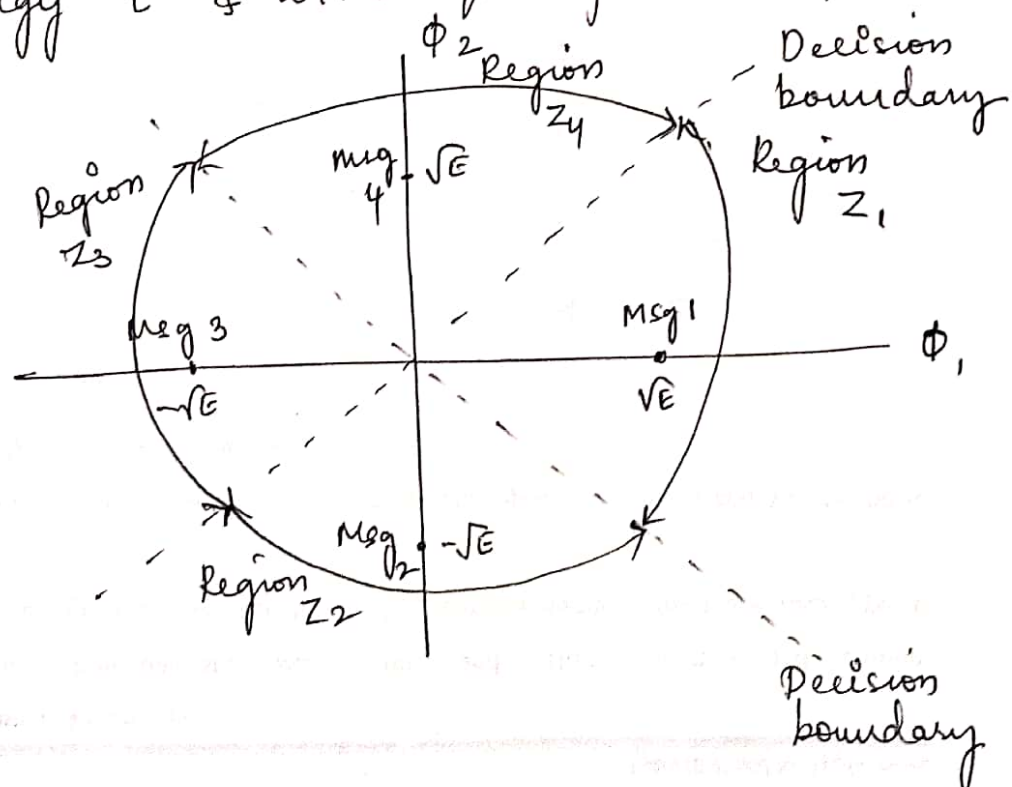 ϕ2
Region
Z4
Decision
boundary
msg
4
√E
Region
Z1
Region
Z3
Msg 3
Msg 1
ϕ1
-√E
√E
Msg
2
-√E
Region
Z2
Decision
boundary